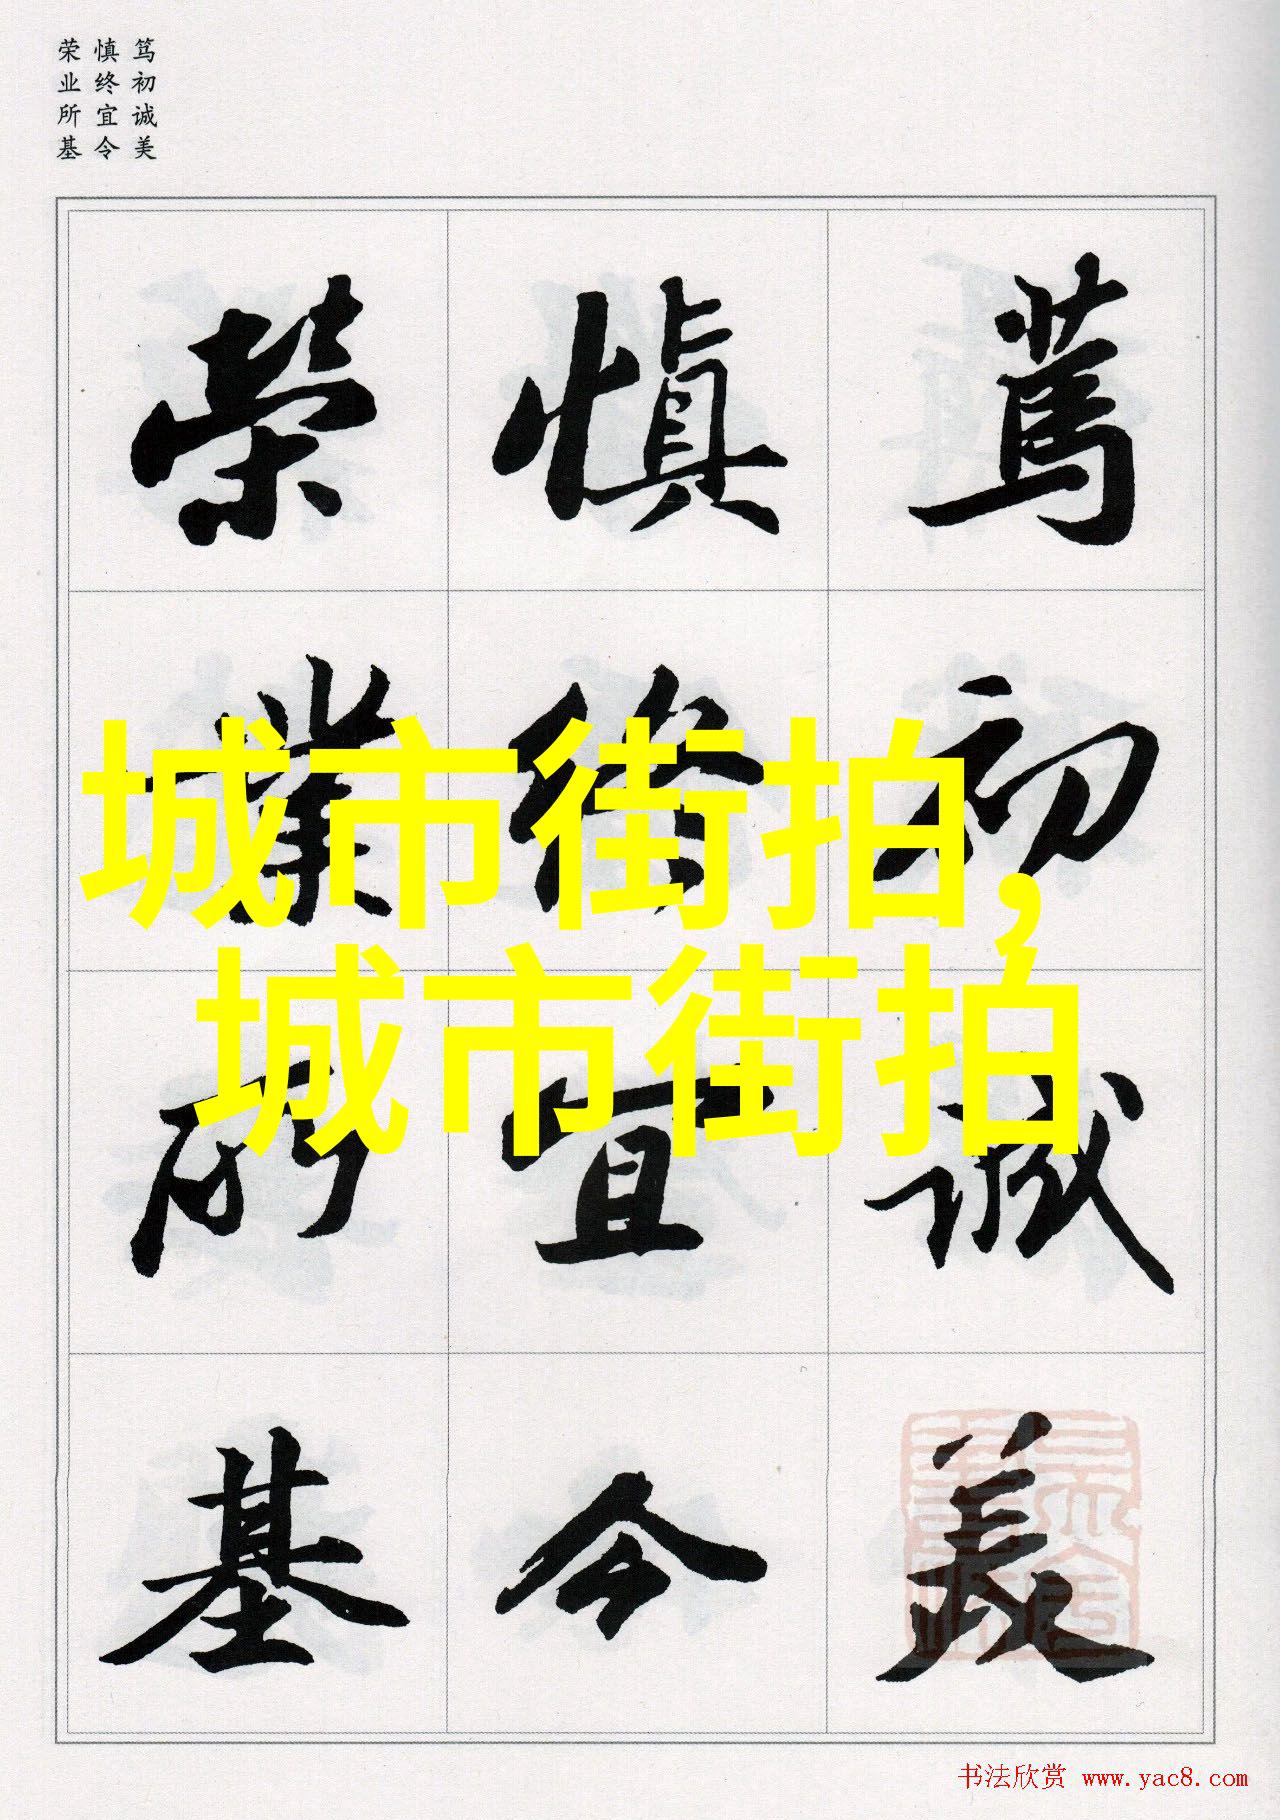 笃初诚美
慎终宜令
荣业所基
篤初誠美
慎終宜令
榮業所基
城市街拍,
城市街拍
书法欣赏 www.yac8.com